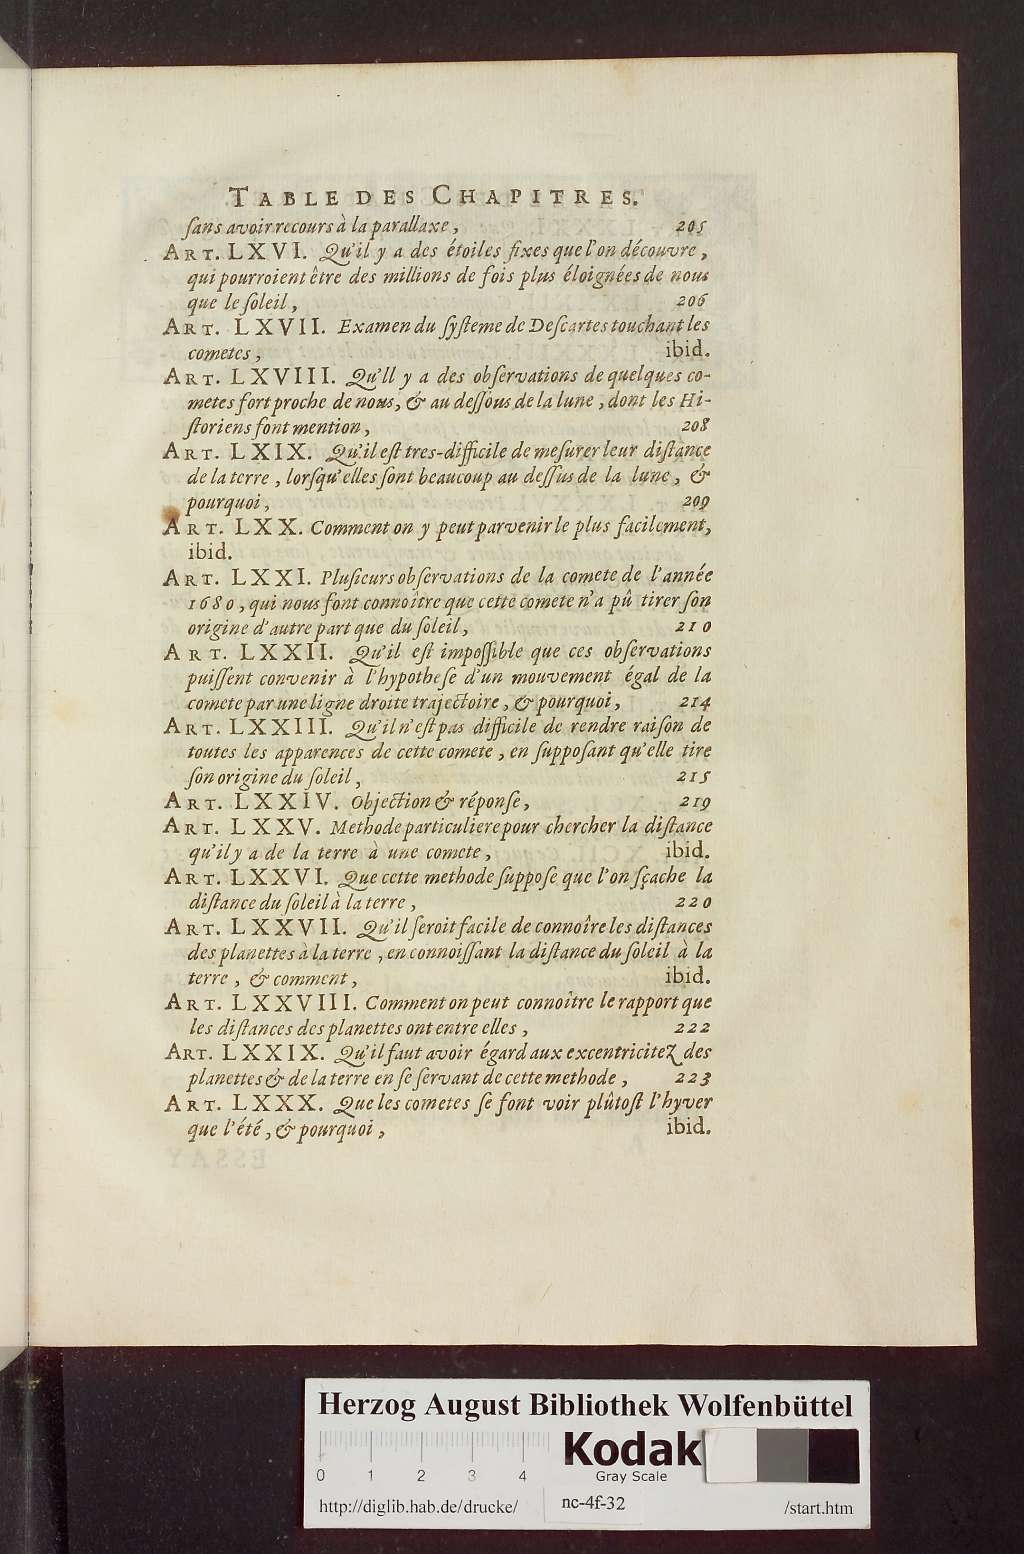 TABLE DES CHAPITRES.
ſans avoir recours à la parallaxe, 205
ART. LXVI. Qu'il y a des étoiles fixes que l'on découvre,
qui pourroient être des millions de fois plus éloignées de nous
que le ſoleil, 206
ART. LXVII. Examen du ſyſteme de Deſcartes touchant les
cometes, ibid.
ART. LXVIII. Qu'll y a des obſervations de quelques co-
metes fort proche de nous, & au deſſous de la lune, dont les Hi-
ſtoriens font mention, 208
ART. LXIX. Qu'il eſt tres-difficile de meſurer leur diſtance
de la terre, lorſqu'elles ſont beaucoup au deſſus de la lune, &
pourquoi, 209
ART. LXX. Comment on y peut parvenir le plus facilement,
ibid.
ART. LXXI. Pluſieurs obſervations de la comete de l'année
1680, qui nous font connoître que cette comete n'a pû tirer ſon
origine d'autre part que du ſoleil, 210
ART. LXXII. Qu'il eſt impoſſible que ces obſervations
puiſſent convenir à l'hypotheſe d'un mouvement égal de la
comete par une ligne droite trajectoire, & pourquoi, 214
ART. LXXIII. Qu'il n'eſt pas difficile de rendre raiſon de
toutes les apparences de cette comete, en ſuppoſant qu'elle tire
ſon origine du ſoleil, 215
ART. LXXIV. Objection & réponſe, 219
ART. LXXV. Methode particuliere pour chercher la diſtance
qu'il y a de la terre à une comete, ibid.
ART. LXXVI. Que cette methode ſuppoſe que l'on ſçache la
diſtance du ſoleil à la terre, 220
ART. LXXVII. Qu'il ſeroit facile de connoîre les diſtances
des planettes à la terre, en connoiſſant la diſtance du ſoleil à la
terre, & comment, ibid.
ART. LXXVIII. Comment on peut connoître le rapport que
les diſtances des planettes ont entre elles, 222
ART. LXXIX. Qu'il faut avoir égard aux excentricitez des
planettes & de la terre en ſe ſervant de cette methode, 223
ART. LXXX. Que les cometes ſe font voir plûtoſt l'hyver
que l'été, & pourquoi, ibid.
Herzog August Bibliothek Wolfenbüttel
Kodak
Gray Scale
0 1 2 3 4
http://diglib.hab.de/drucke/ nc-4f-32 /start.htm